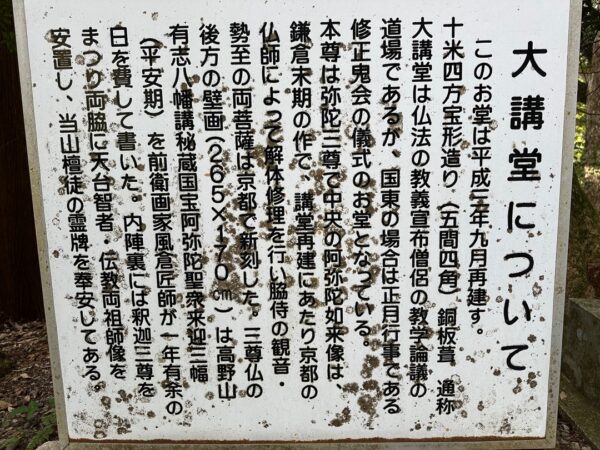 大講堂について
このお堂は平成三年九月再建す。
十米四方宝形造り（五間四角）銅板葺　通称
大講堂は仏法の教義宣布僧侶の教学論議の
道場であるが、国東の場合は正月行事である
修正鬼会の儀式のお堂となっている。
本尊は弥陀三尊で中央の阿弥陀如来像は、
鎌倉末期の作で、講堂再建にあたり京都の
仏師によって解体修理を行い脇侍の観音・
勢至の両菩薩は京都で新刻した。三尊仏の
後方の壁画（265×170㎝）は高野山
有志八幡講秘蔵国宝阿弥陀聖衆来迎三幅
（平安期）を前衛画家風倉匠師が一年有余の
日を費して書いた。内陣裏には釈迦三尊を
まつり両脇に天台智者・伝教両祖師像を
安置し、当山檀徒の霊牌を奉安してある。